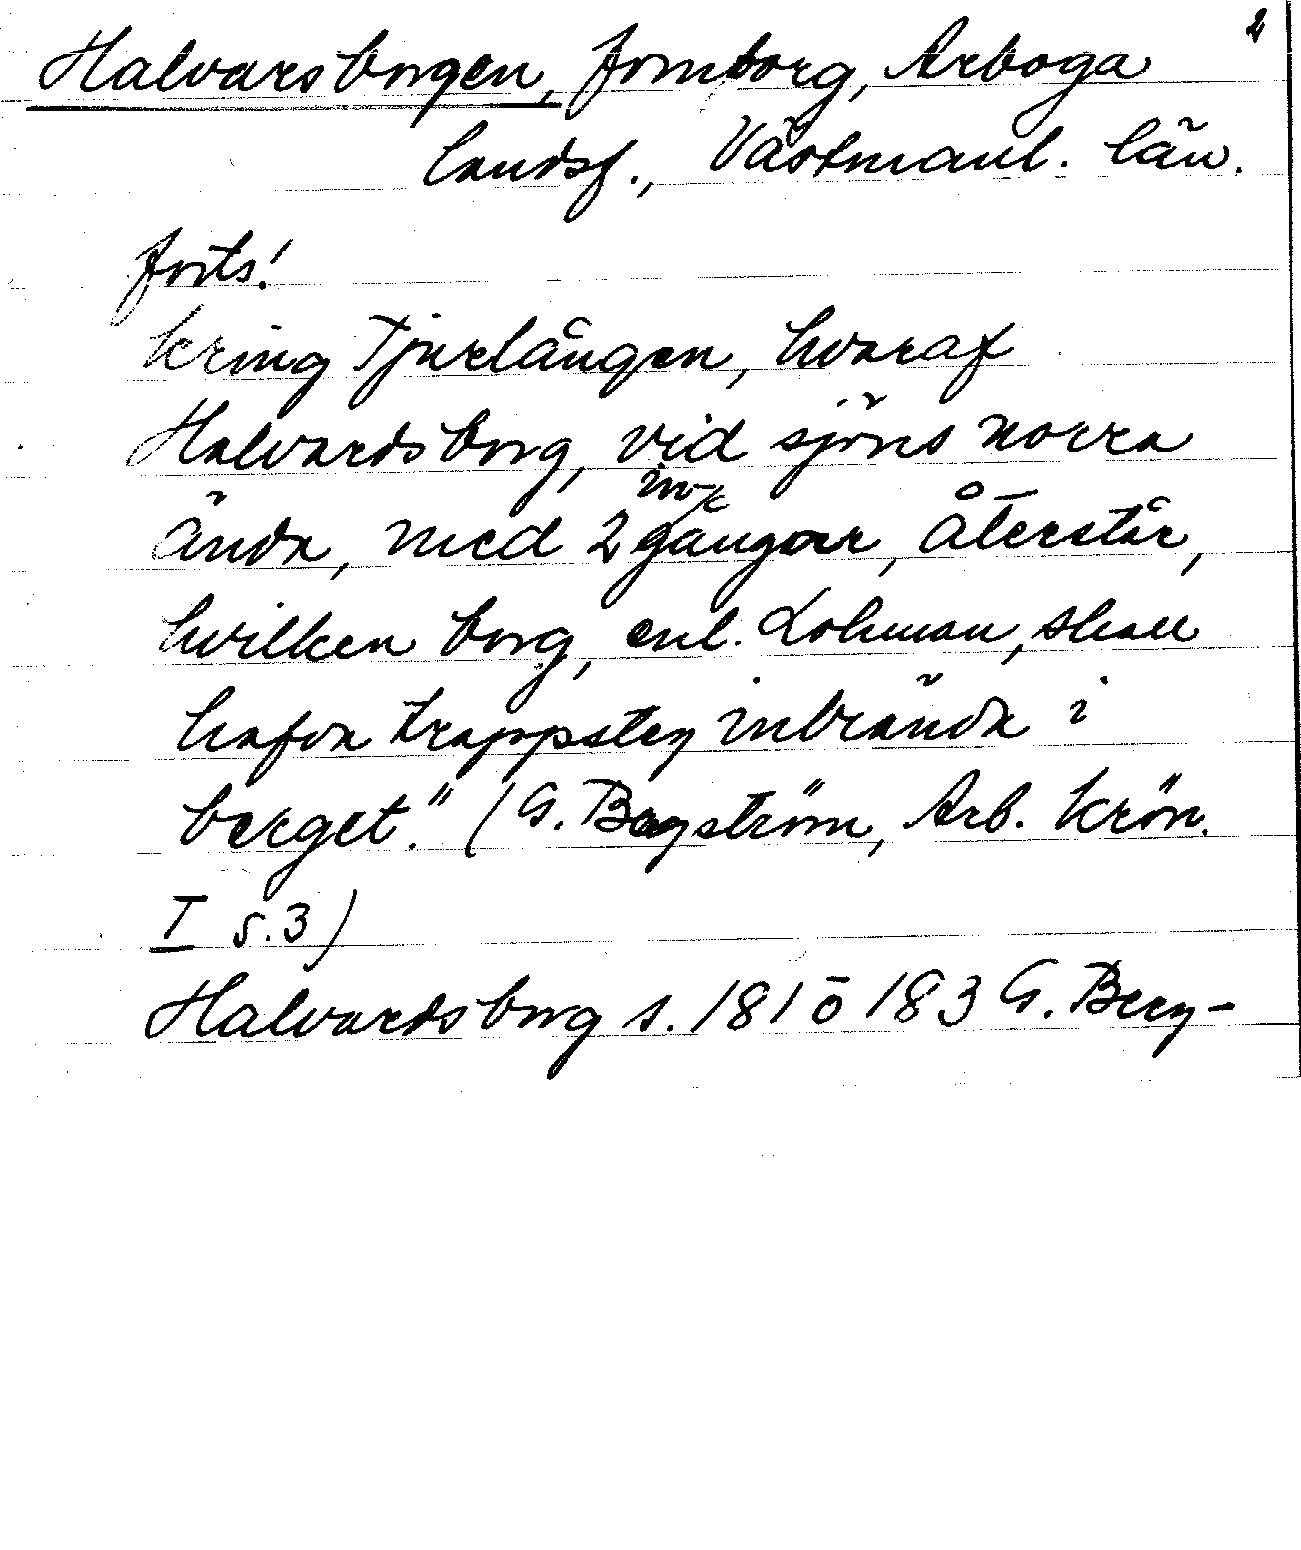 2
Halvarsborgen, fornborg, Arboga
landsf., Västmanl. län.
forts!
kring Tjurlången, hvaraf
Halvardsborg, vid sjöns norra
ända, med 2 ingångar, återstår,
hvilken borg, enl. Lohman, skall
hafva trappsteg inbrända i
berget." (G. Bergström, Arb. krön.
I s. 3)
Halvardsborg s. 181 o 183 G. Berg-